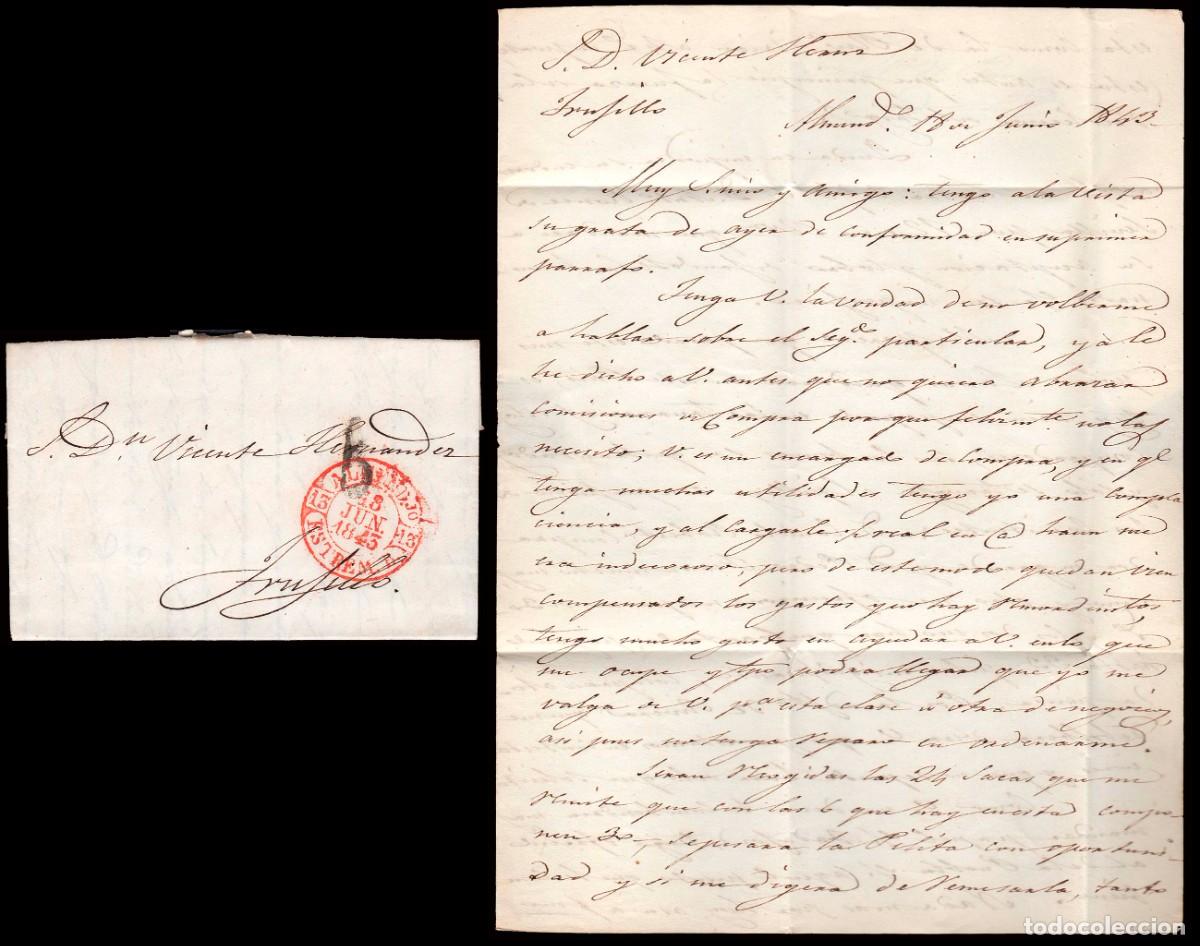 S. Dn. Vicente Hernandez
6
ALMENDJO
18
JUN
1843
ESTREM.
Trujillo.
S. D. Vicente Hernz
Trujillo Almendo. 18 de Junio 1843
Muy S. mio y Amigo: tengo a la vista
su grata de ayer de conformidad en su primer
parrafo.
Tenga V. la vondad de no volberme
a hablar sobre el segdo. particular, ya le
he dicho a V. antes que no quiero abrazar
comisiones de Compra por que felizmte. no las
necesito; V. es un encargado de compra, y en ql.
tenga muchas utilidades tengo yo una compla
ciencia, y al cargarle real en @ haun me
era indecoroso, pero de este modo quedan vien
compensados los gastos que hay
tengo mucho gusto en ayudar a V. en lo que
me ocupe y tpo podra llegar que yo me
valga de V. pa. esta clase ú otra de negocios,
asi pues no tenga reparo en ordenarme.
Seran recogidas las 24 Sacas que me
remite que con las 6 que hay en esta compo-
nen 30, se pesara la Pilita con oportuni-
dad y si me digera de remesarla, tanto
todocoleccion.net